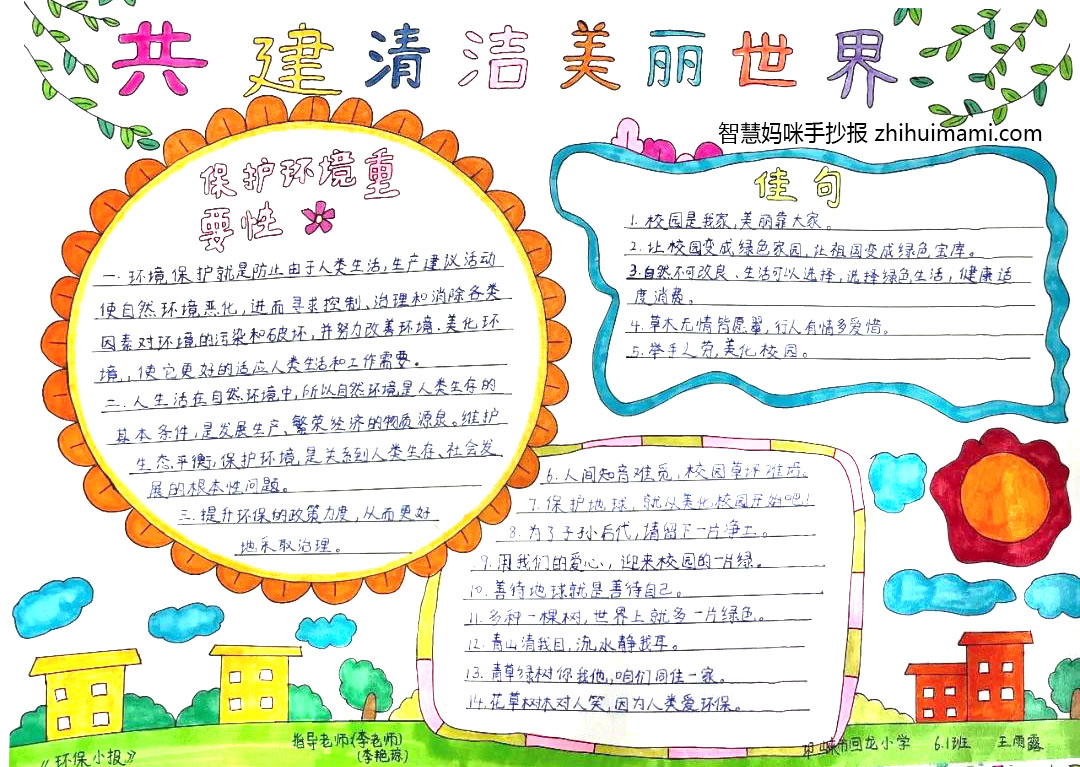 共建清洁美丽世界
智慧妈咪手抄报 zhihuimami.com
保护环境重
要性
一. 环境保护就是防止由于人类生活,生产建议活动
使自然环境恶化,进而寻求控制、治理和消除各类
因素对环境的污染和破坏,并努力改善环境、美化环
境,使它更好的适应人类生活和工作需要。
二.人生活在自然环境中,所以自然环境是人类生存的
基本条件,是发展生产、繁荣经济的物质源泉。维护
生态平衡,保护环境,是关系到人类生存、社会发
展的根本性问题。
三.提升环保的政策力度,从而更好
地采取治理。
佳句
1. 校园是我家,美丽靠大家。
2.让校园变成绿色家园,让祖国变成绿色宝库。
3.自然不可改良、生活可以选择,选择绿色生活,健康适
度消费。
4.草木无情皆愿翠,行人有情多爱惜。
5.举手之劳,美化校园。
6.人间知音难觅,校园草坪难培。
7.保护地球,就从美化校园开始吧!
8.为了子孙后代,请留下一片净土。
9.用我们的爱心,迎来校园的一片绿。
10.善待地球就是善待自己。
11.多种一棵树,世界上就多一片绿色。
12.青山清我目,流水静我耳。
13.青草绿树你我他,咱们同住一家。
14.花草树木对人笑,因为人类爱环保。
《环保小报》
指导老师:(李老师)
(李艳琼)
邛崃市回龙小学 6.1班 王雨露